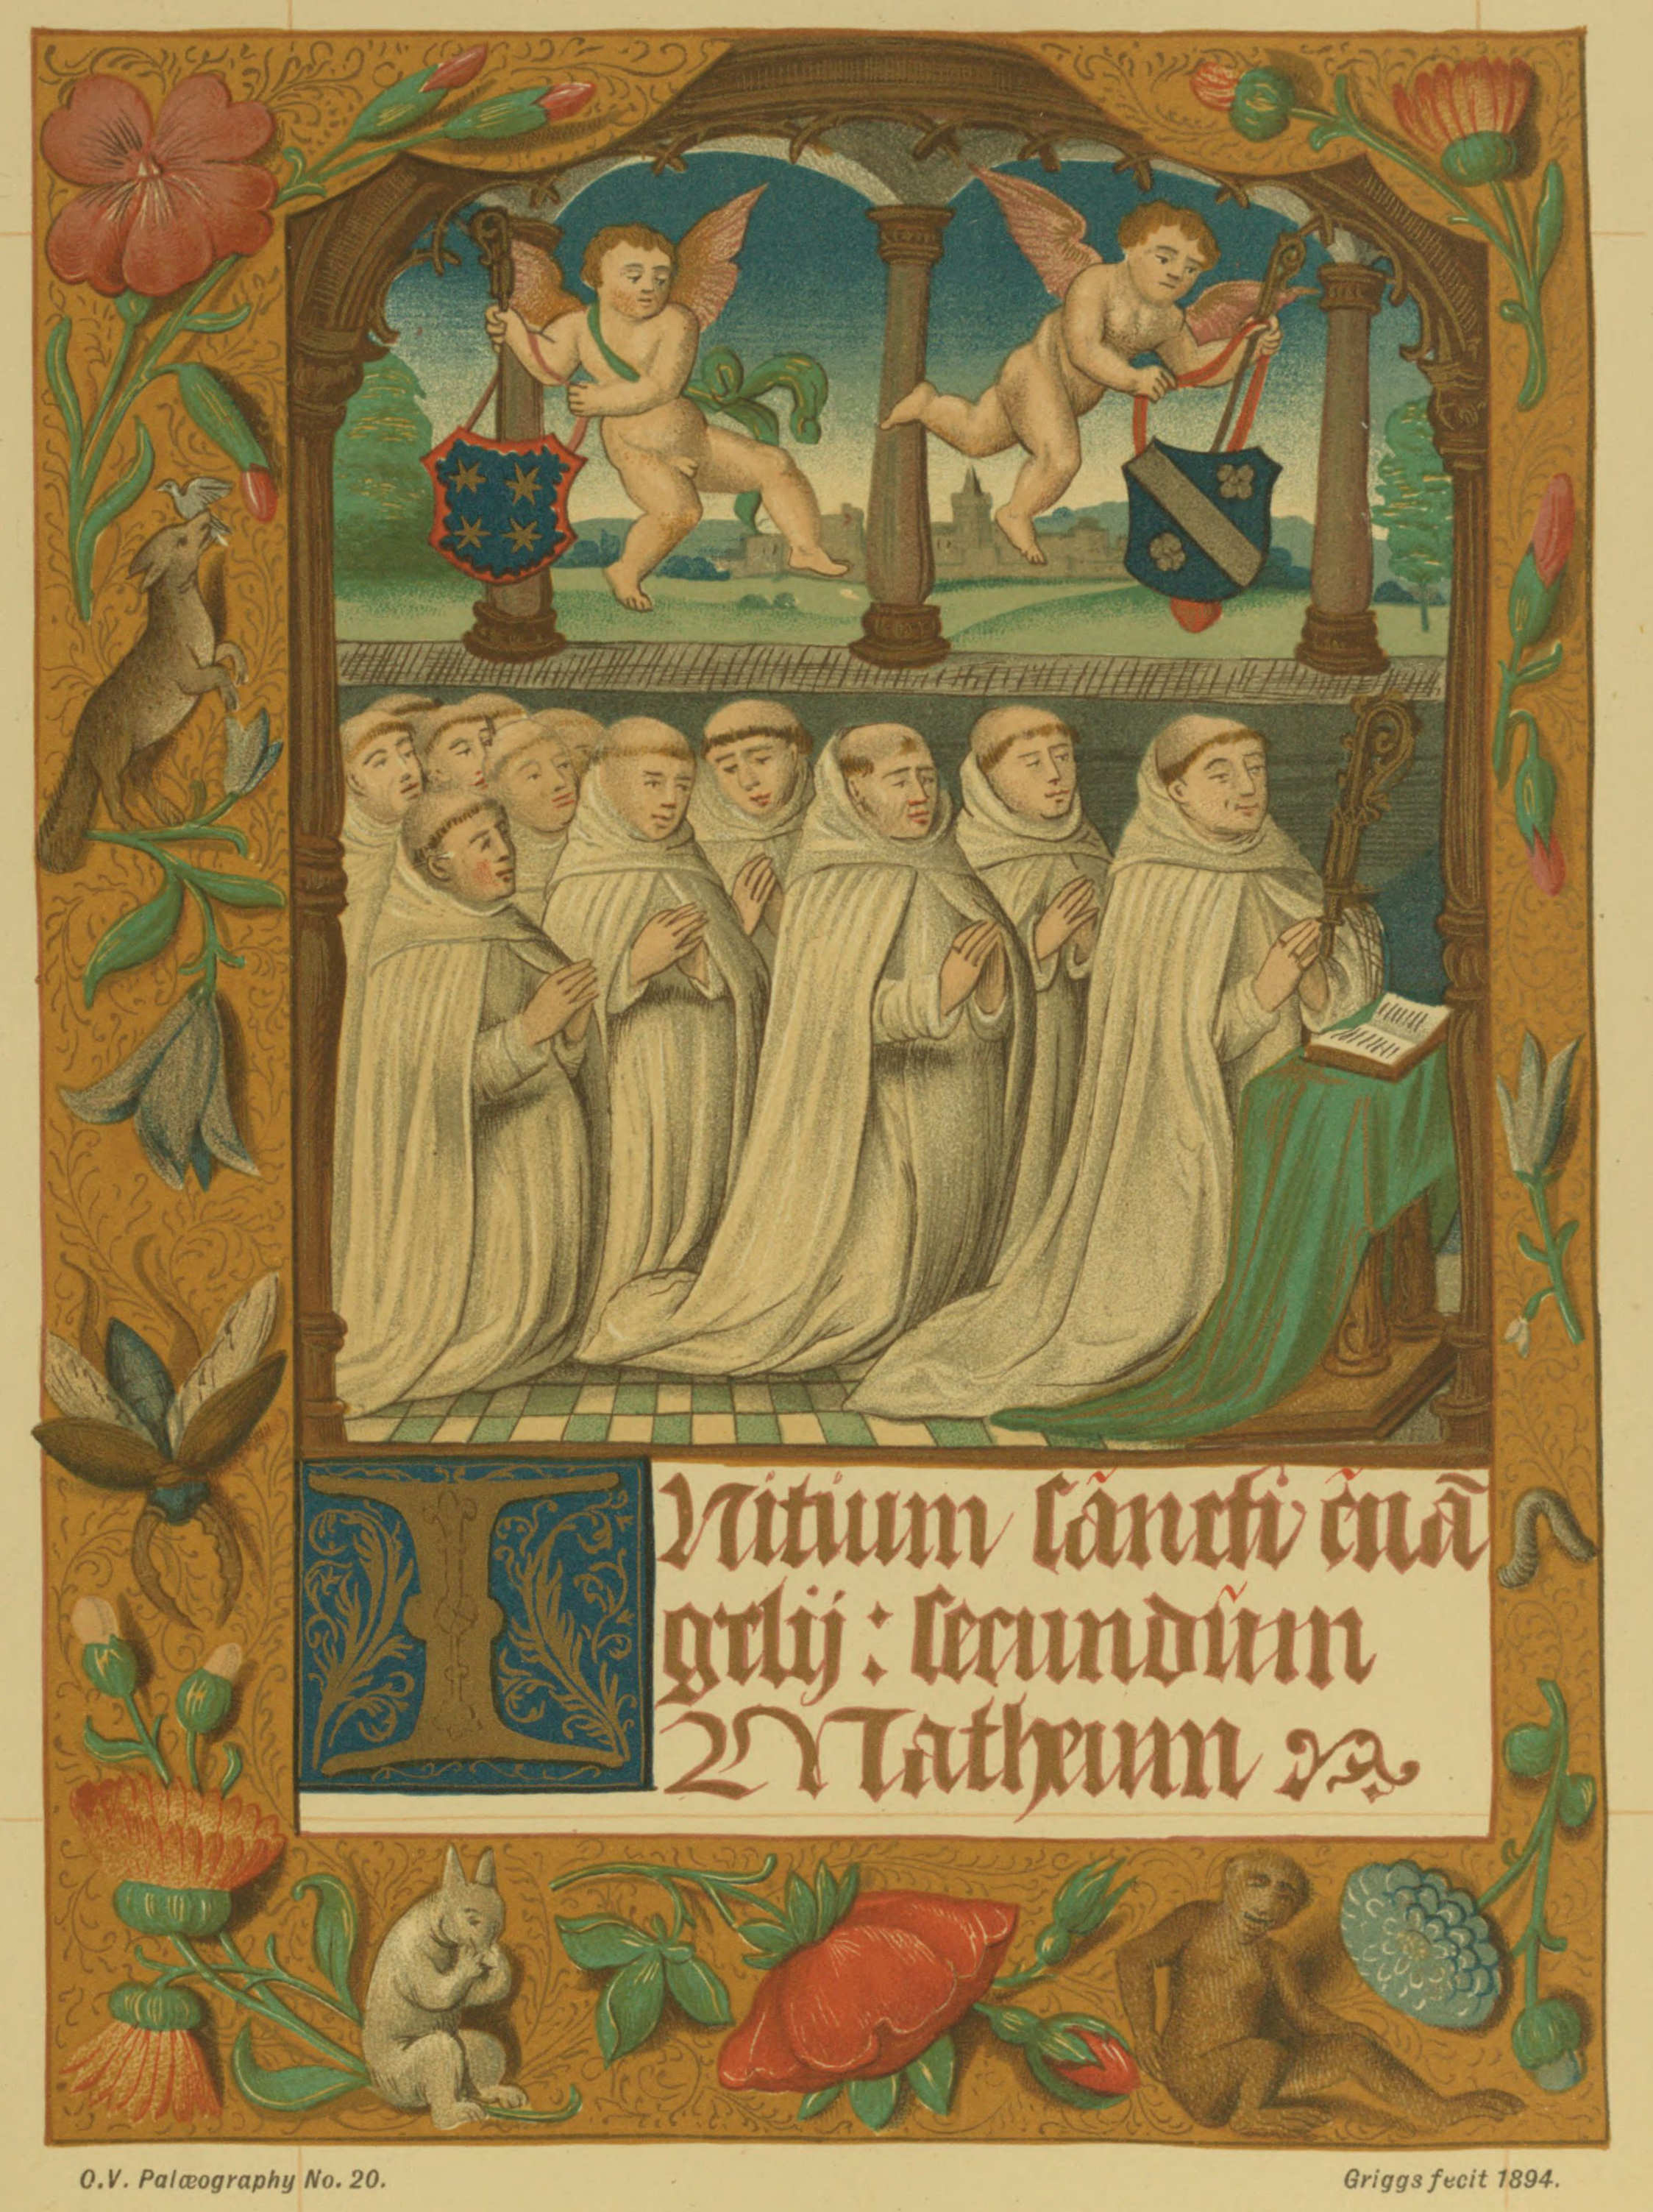 INitium sancti euā
gelij : secundum
Matheum
O.V. Palæography No. 20.
Griggs fecit 1894.